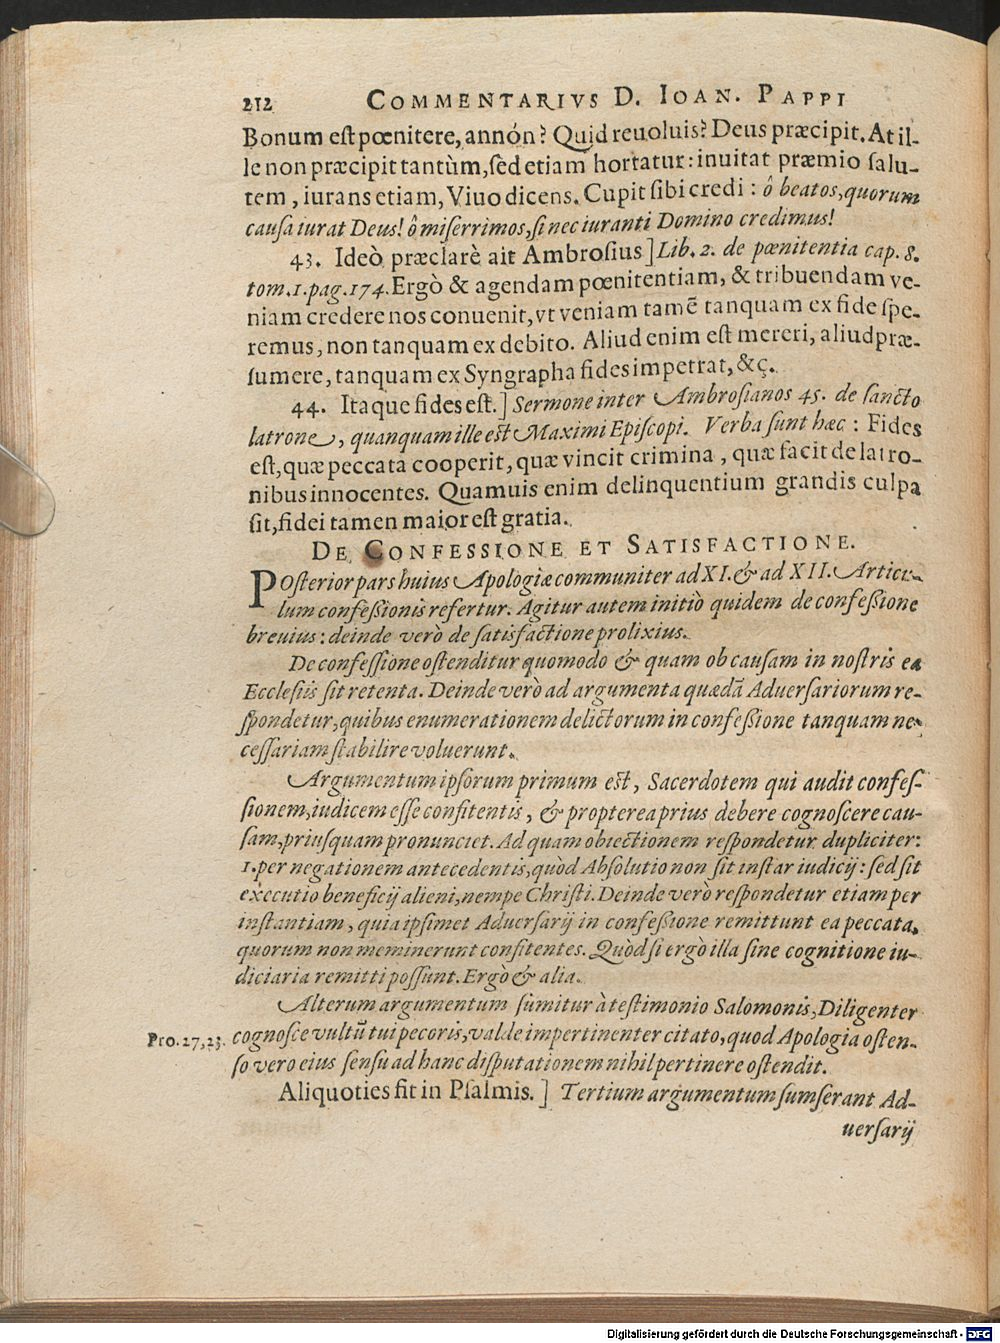 212 COMMENTARIVS D. IOAN. PAPPI
Bonum eſt pœnitere, annón? Quid reuoluis? Deus præcipit. At il-
le non præcipit tantùm, ſed etiam hortatur: inuitat præmio ſalu-
tem, iurans etiam, Viuo dicens. Cupit ſibi credi: ô beatos, quorum
cauſa iurat Deus! ô miſerrimos, ſi nec iuranti Domino credimus!
43. Ideò præclarè ait Ambroſius] Lib. 2. de pœnitentia cap. 8.
tom. 1. pag. 174. Ergò & agendam pœnitentiam, & tribuendam ve-
niam credere nos conuenit, vt veniam tamẽ tanquam ex fide ſpe-
remus, non tanquam ex debito. Aliud enim eſt mereri, aliud præ-
ſumere, tanquam ex Syngrapha fides impetrat, &ç.
44. Itaque fides eſt.] Sermone inter Ambroſianos 45. de ſancto
latrone, quanquam ille est Maximi Epiſcopi. Verba ſunt hæc: Fides
eſt, quæ peccata cooperit, quæ vincit crimina, quæ facit de latro-
nibus innocentes. Quamuis enim delinquentium grandis culpa
ſit, fidei tamen maior eſt gratia.
DE CONFESSIONE ET SATISFACTIONE.
POſterior pars huius Apologiæ communiter ad XI. & ad XII. Articu-
lum confeßionis refertur. Agitur autem initio quidem de confeßione
breuius: deinde verò de ſatisfactione prolixius.
De confeſſione oſtenditur quomodo & quam ob cauſam in noſtris ea
Eccleſiis ſit retenta. Deinde verò ad argumenta quædã Aduerſariorum re-
ſpondetur, quibus enumerationem delictorum in confeßione tanquam ne-
ceſſariam ſtabilire voluerunt.
Argumentum ipſorum primum est, Sacerdotem qui audit confeſ-
ſionem, iudicem eſſe confitentis, & propterea prius debere cognoſcere cau-
ſam, priuſquam pronunciet. Ad quam obiectionem reſpondetur dupliciter:
1. per negationem antecedentis, quòd Abſolutio non ſit inſtar iudicij: ſed ſit
executio beneficij alieni, nempe Chriſti. Deinde verò reſpondetur etiam per
inſtantiam, quia ipſimet Aduerſarij in confeßione remittunt ea peccata,
quorum non meminerunt confitentes. Quòd ſi ergò illa ſine cognitione iu-
diciaria remitti poſſunt. Ergò & alia.
Alterum argumentum ſumitur à teſtimonio Salomonis, Diligenter
Pro. 27, 23. cognoſce vultũ tui pecoris, valde impertinenter citato, quod Apologia oſten-
ſo vero eius ſenſu ad hanc diſputationem nihil pertinere oſtendit.
Aliquoties fit in Pſalmis.] Tertium argumentum ſumſerant Ad-
uerſarij
Digitalisierung gefördert durch die Deutsche Forschungsgemeinschaft - DFG